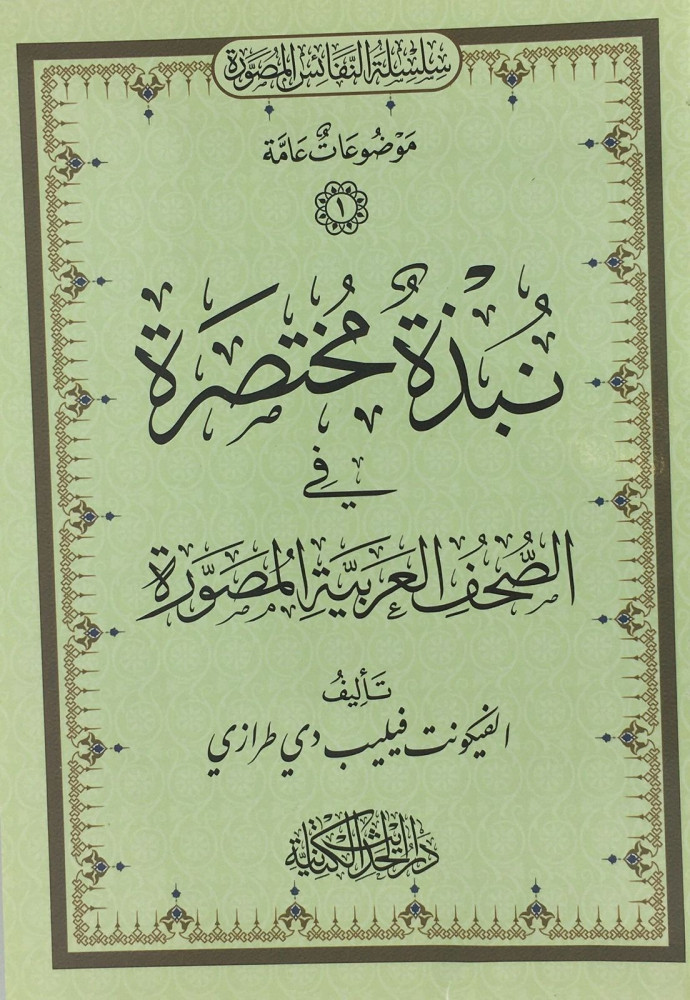 سِلْسِلَةُ النَّفَائِسِ المُصَوَّرَةِ
مَوْضُوعَاتٌ عَامَّة
١
نُبْذَةٌ مُخْتَصَرَة
فِي
الصُّحُفِ العَرَبِيَّةِ المُصَوَّرَة
تَأْلِيفُ
الفيكونت فيليب دي طرازي
دار الحداثة الكتبية